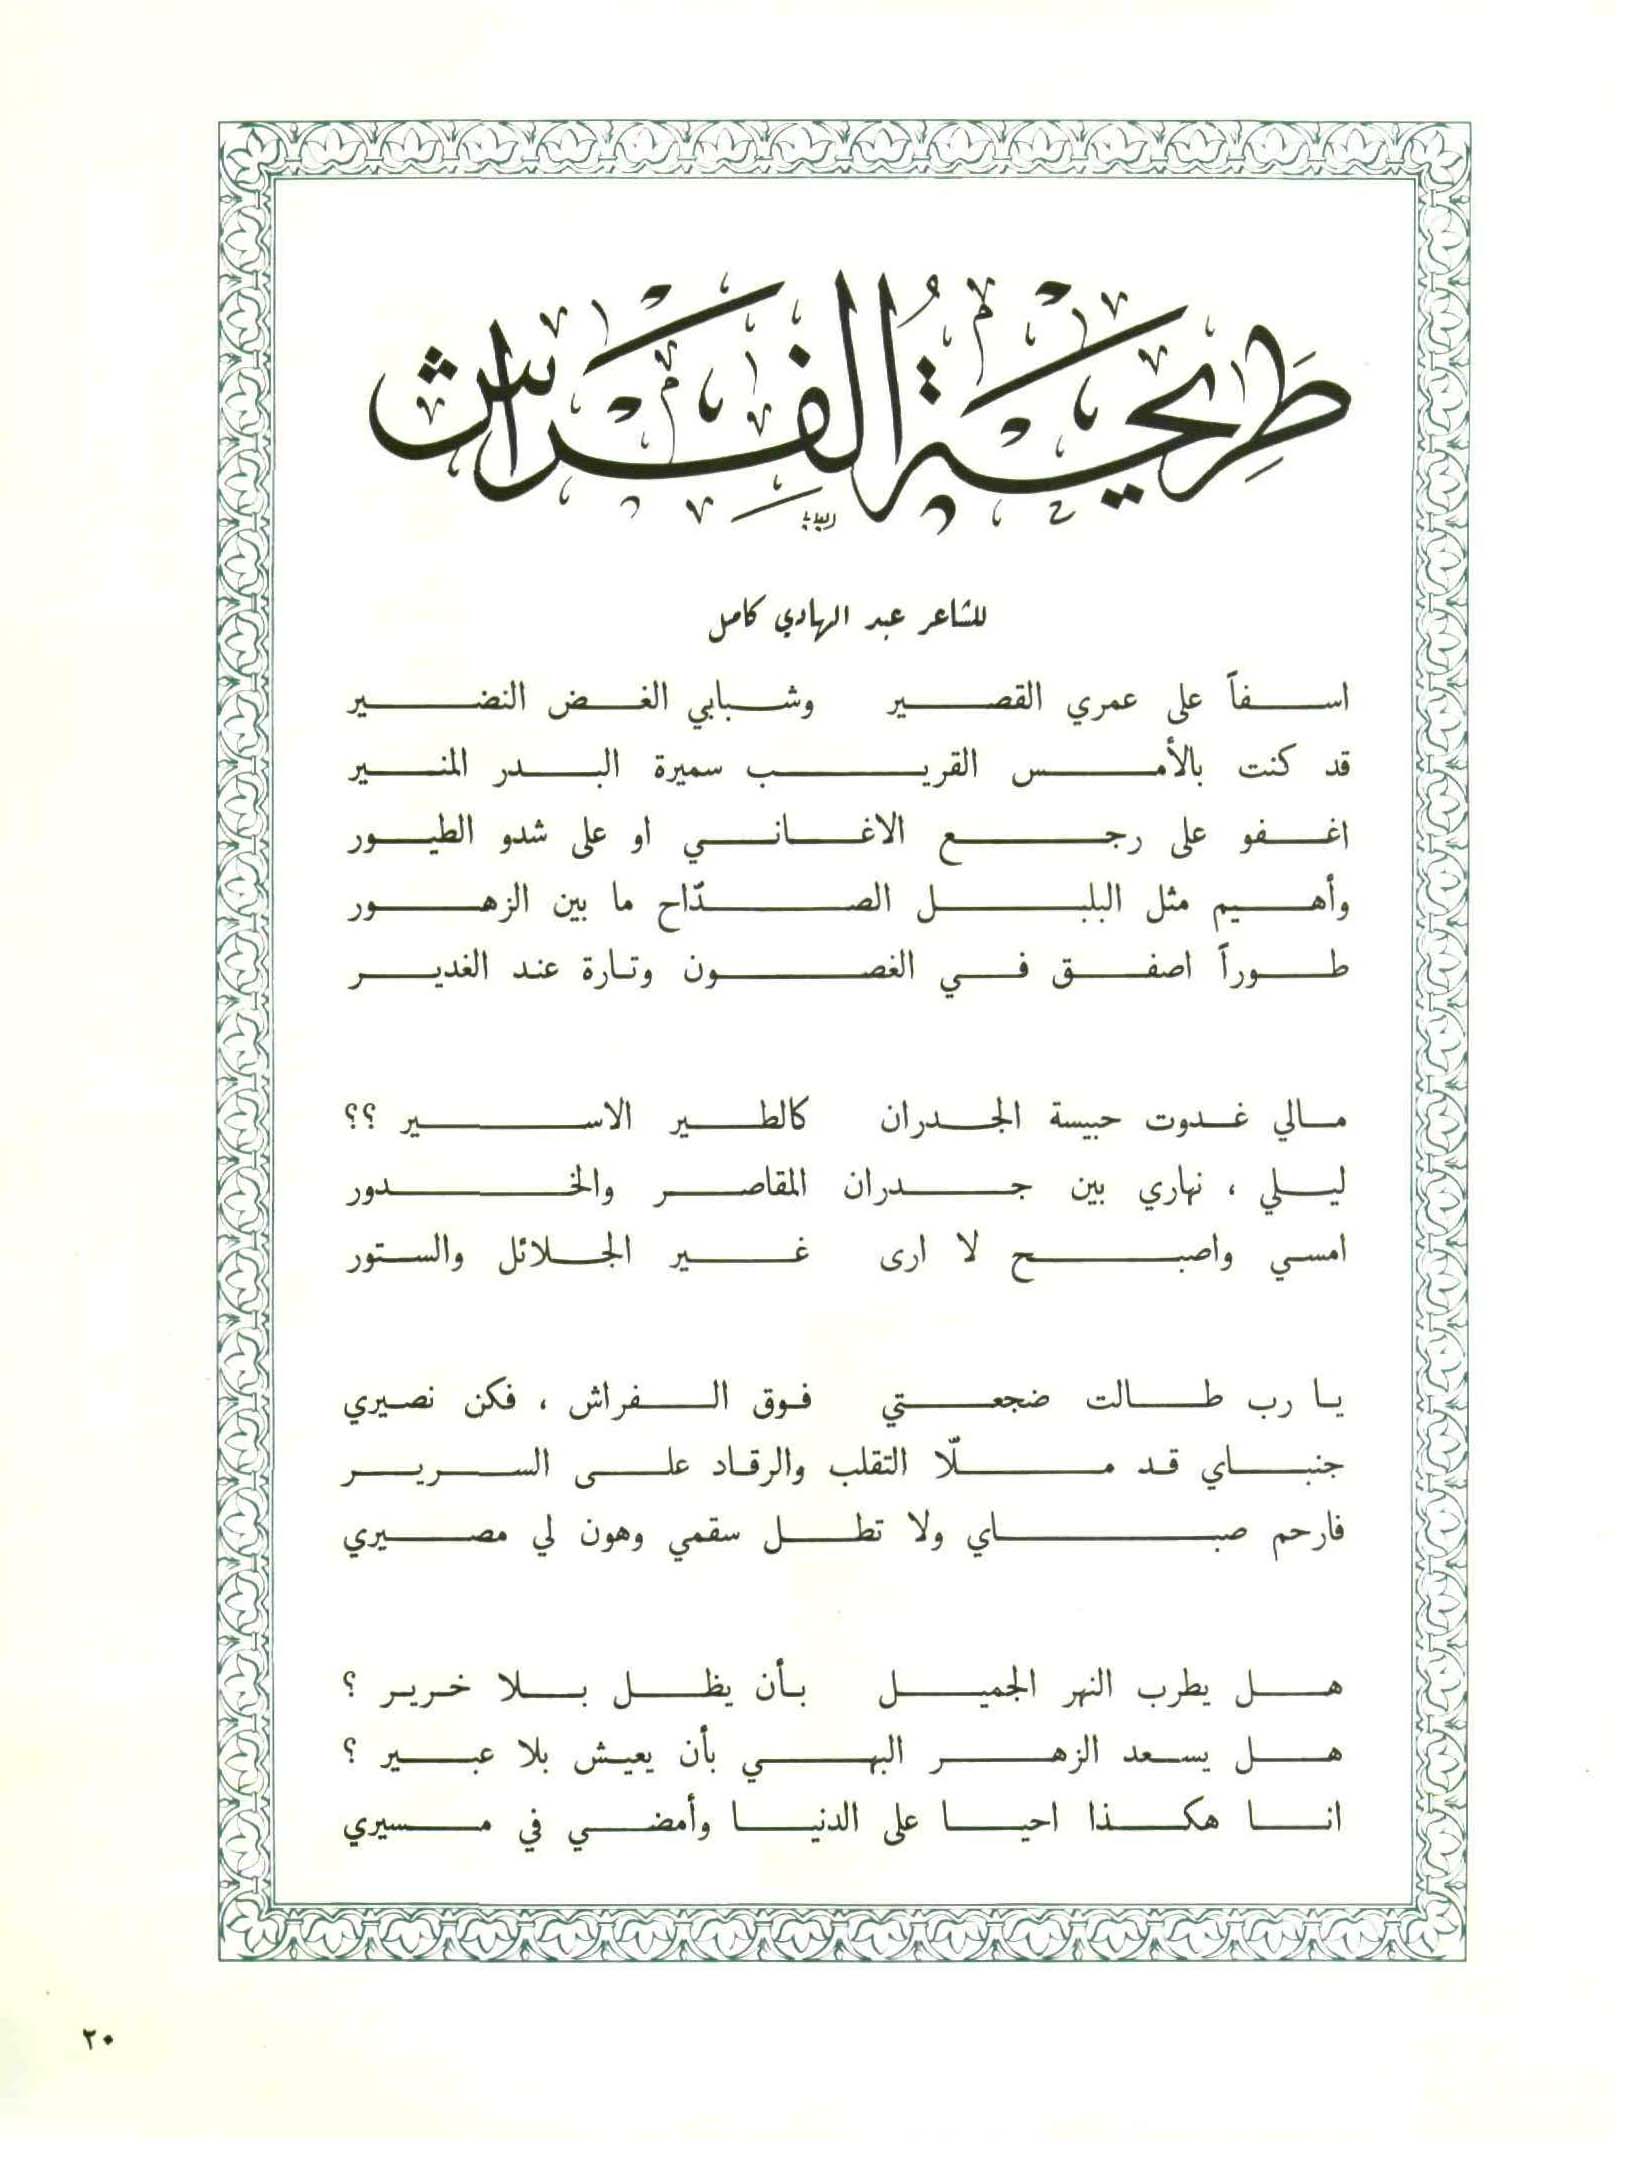 طَرِيحَةُ الفِرَاش
للشاعر عبد الهادي كامل
اسفاً على عمري القصير وشبابي الغض النضير
قد كنت بالأمس القريب سميرة البدر المنير
اغفو على رجع الاغاني او على شدو الطيور
وأهيم مثل البلبل الصدّاح ما بين الزهور
طوراً اصفق في الغصون وتارة عند الغدير
مالي غدوت حبيسة الجدران كالطير الاسير ؟؟
ليلي ، نهاري بين جدران المقاصر والخدور
امسي واصبح لا ارى غير الجلائل والستور
يا رب طالت ضجعتي فوق الفراش ، فكن نصيري
جنباي قد ملّا التقلب والرقاد على السرير
فارحم صباي ولا تطل سقمي وهون لي مصيري
هل يطرب النهر الجميل بأن يظل بلا خرير ؟
هل يسعد الزهر البهي بأن يعيش بلا عبير ؟
انا هكذا احيا على الدنيا وأمضي في مسيري
٢٠